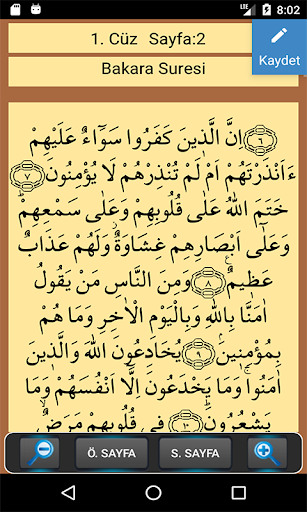 LTE 8:02
1. Cüz Sayfa:2
Kaydet
Bakara Suresi
﴿٦﴾ اِنَّ الَّذٖينَ كَفَرُوا سَوَٓاءٌ عَلَيْهِمْ
ءَاَنْذَرْتَهُمْ اَمْ لَمْ تُنْذِرْهُمْ لَا يُؤْمِنُونَ ﴿٧﴾
خَتَمَ اللّٰهُ عَلٰى قُلُوبِهِمْ وَعَلٰى سَمْعِهِمْ
وَعَلٰٓى اَبْصَارِهِمْ غِشَاوَةٌ وَلَهُمْ عَذَابٌ
عَظٖيمٌ ﴿٨﴾ وَمِنَ النَّاسِ مَنْ يَقُولُ
اٰمَنَّا بِاللّٰهِ وَبِالْيَوْمِ الْاٰخِرِ وَمَا هُمْ
بِمُؤْمِنٖينَ ﴿٩﴾ يُخَادِعُونَ اللّٰهَ وَالَّذٖينَ
اٰمَنُوا وَمَا يَخْدَعُونَ اِلَّٓا اَنْفُسَهُمْ وَمَا
يَشْعُرُونَ ﴿١٠﴾ فٖي قُلُوبِهِمْ مَرَضٌ
Ö. SAYFA
S. SAYFA